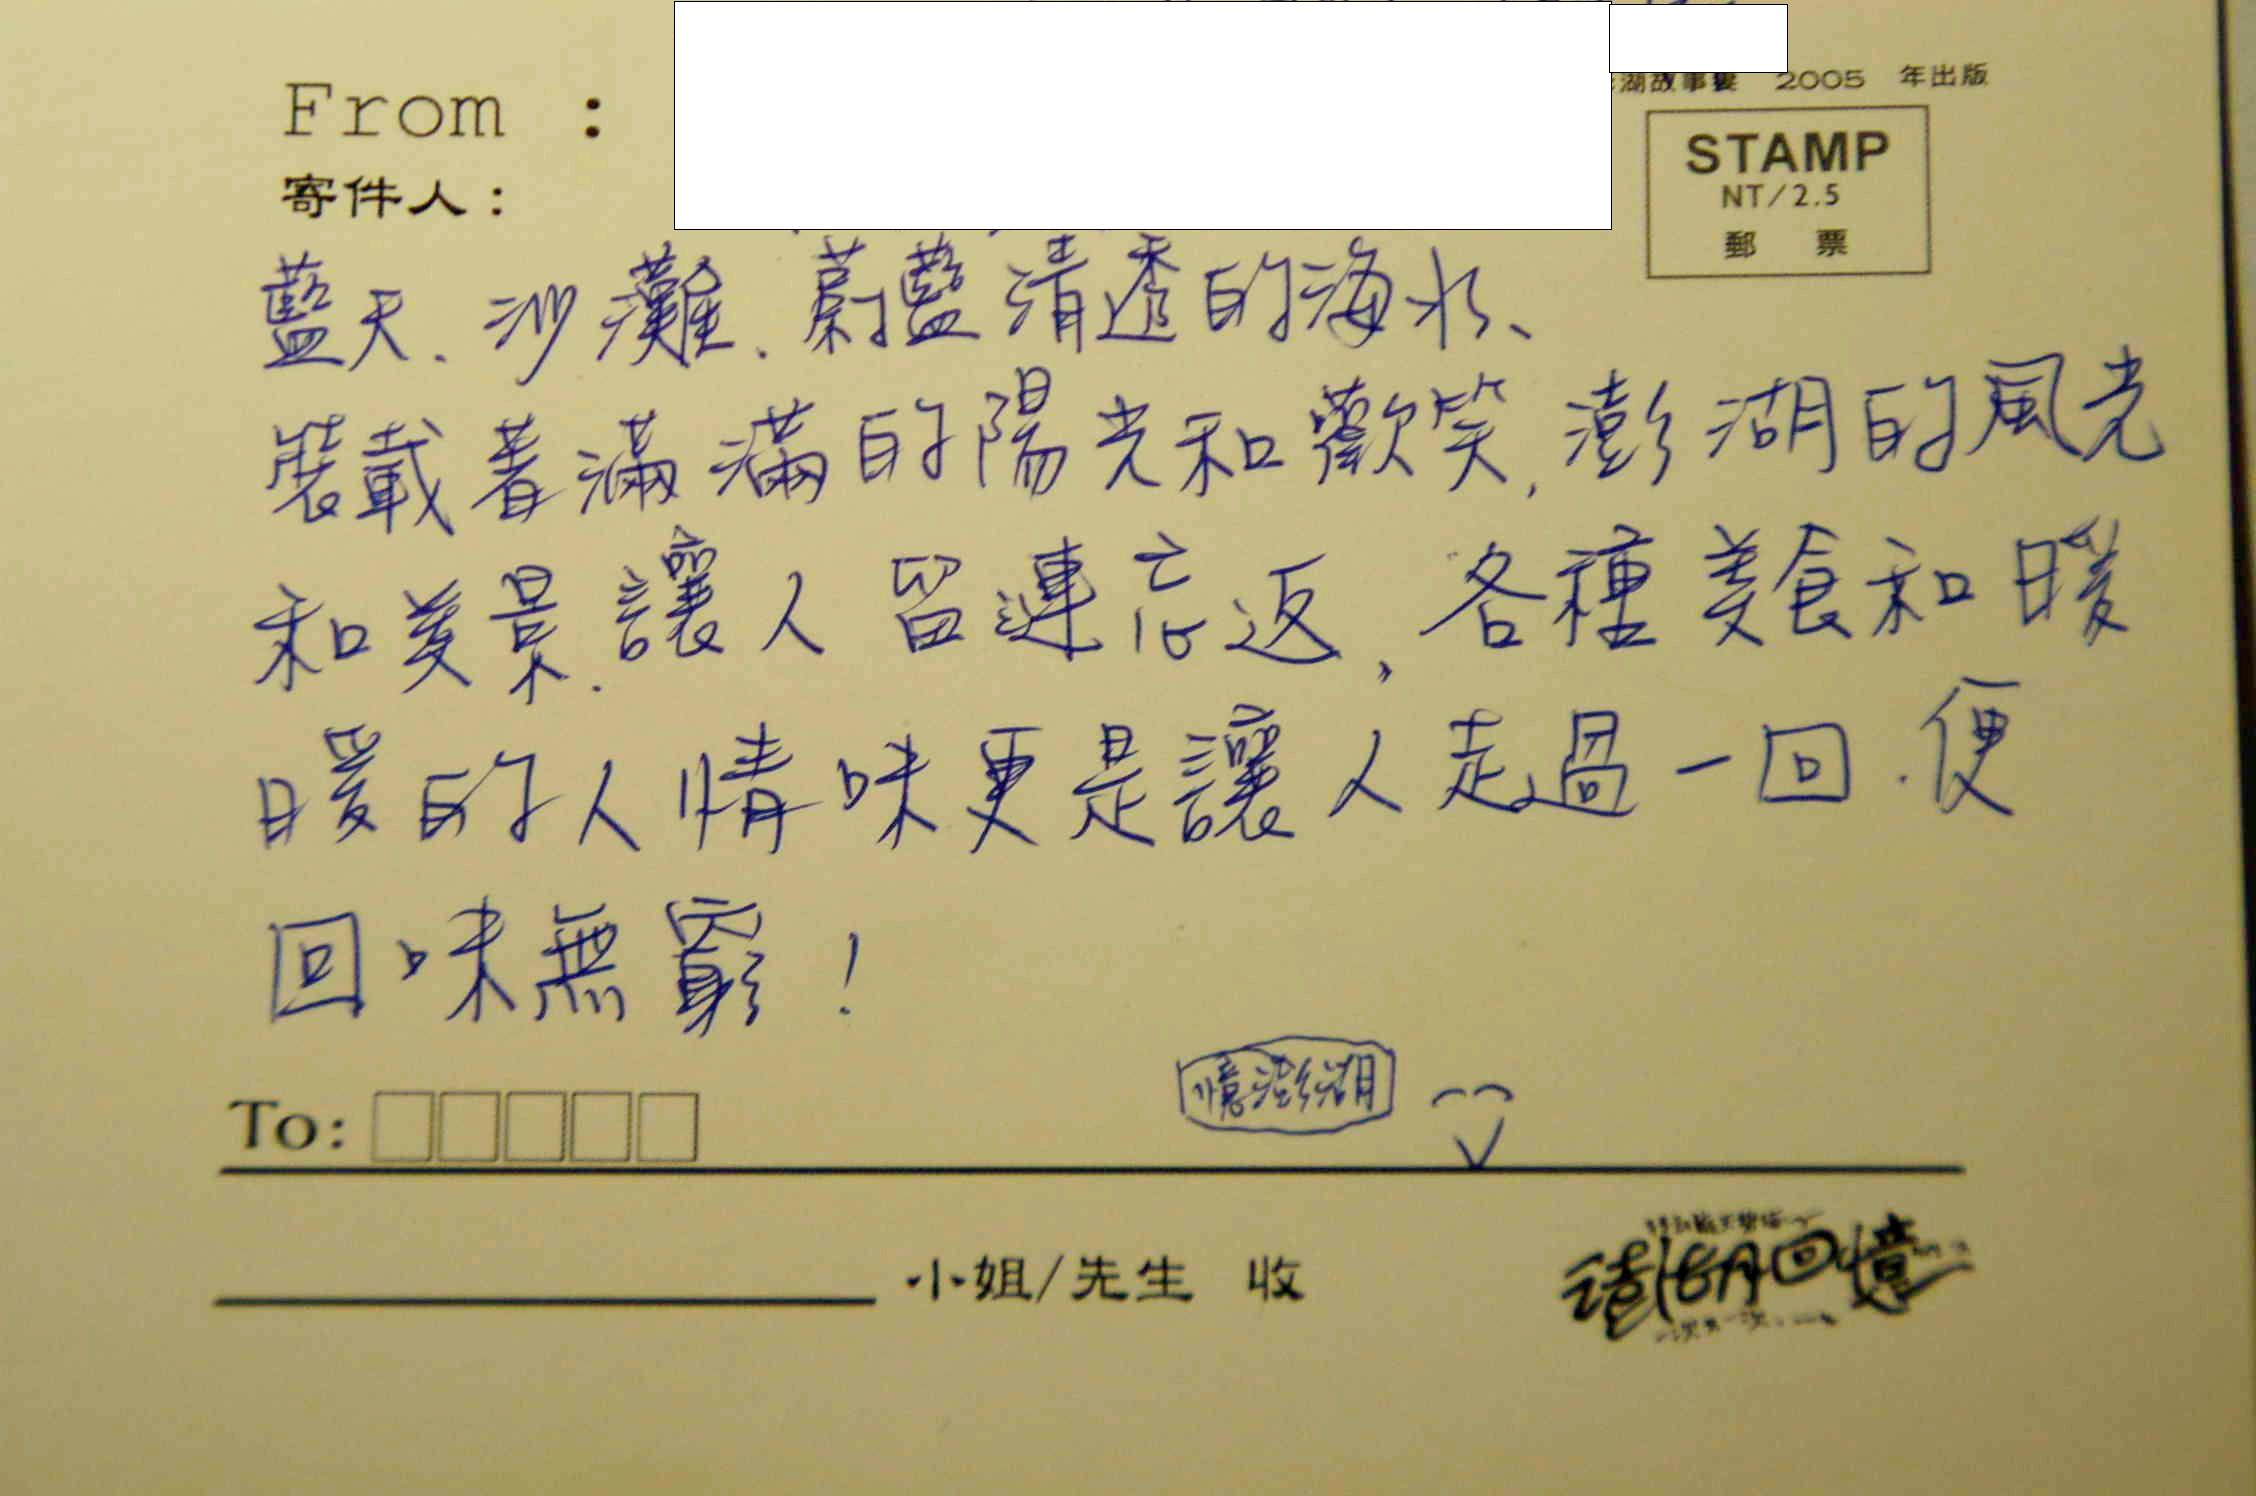 From :
寄件人:
湖故事妻 2005 年出版
STAMP
NT/2.5
郵 票
藍天、沙灘、蔚藍清透的海水、
裝載著滿滿的陽光和歡笑,澎湖的風光
和美景.讓人留連忘返,各種美食和暖
暖的人情味更是讓人走過一回.便
回味無窮!
憶澎湖
To:
小姐/先生 收
澎湖回憶